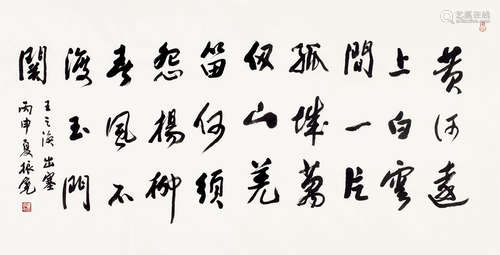 黄河遠
上白雲
間一片
孤城萬
仞山羌
笛何須
怨楊柳
春風不
渡玉門
關
王之渙出塞
丙申夏振寬